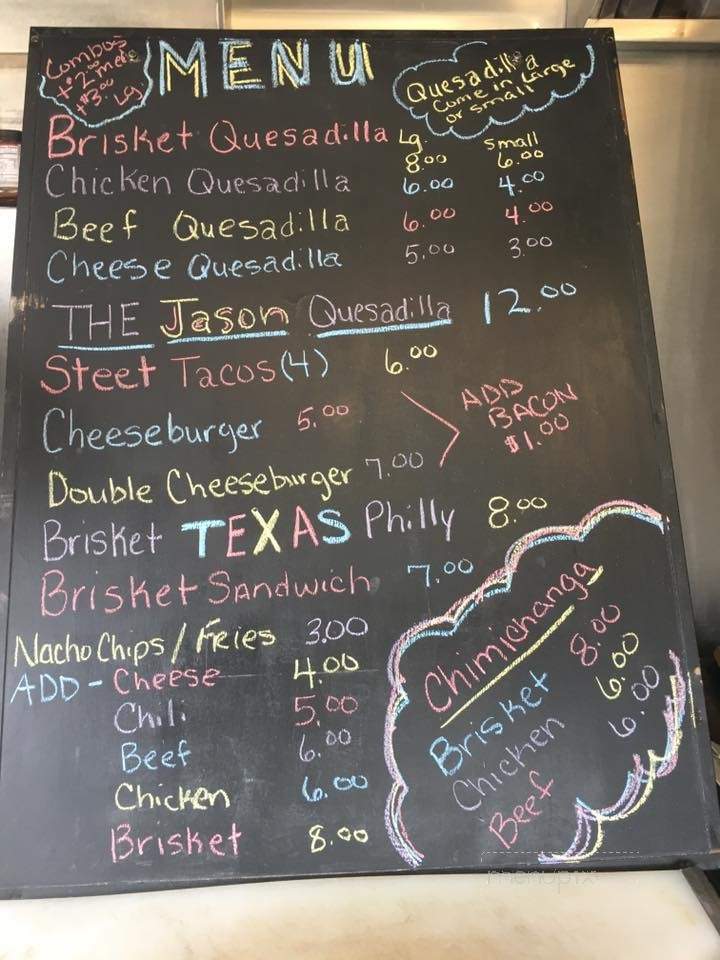 Combos
+$2.00 med
+$3.00 Lg
MENU
Quesadilla
come in Large
or small
Brisket Quesadilla Lg. 8.00 small 6.00
Chicken Quesadilla 6.00 4.00
Beef Quesadilla 6.00 4.00
Cheese Quesadilla 5.00 3.00
THE Jason Quesadilla 12.00
Steet Tacos (4) 6.00
Cheeseburger 5.00
ADD
BACON
$1.00
Double Cheeseburger 7.00
Brisket TEXAS Philly 8.00
Brisket Sandwich 7.00
Nacho Chips / Fries 3.00
ADD - Cheese 4.00
Chili 5.00
Beef 6.00
Chicken 6.00
Brisket 8.00
Chimichanga
Brisket 8.00
Chicken 6.00
Beef 6.00
menupix